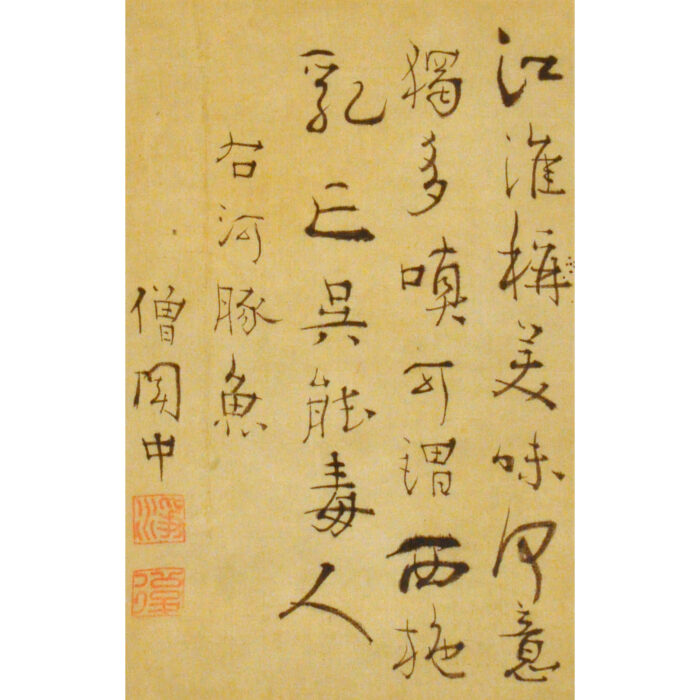 江淮稱美味何意
獨多嗔可謂西施
乳亡吳能毒人
右河豚魚
僧関中